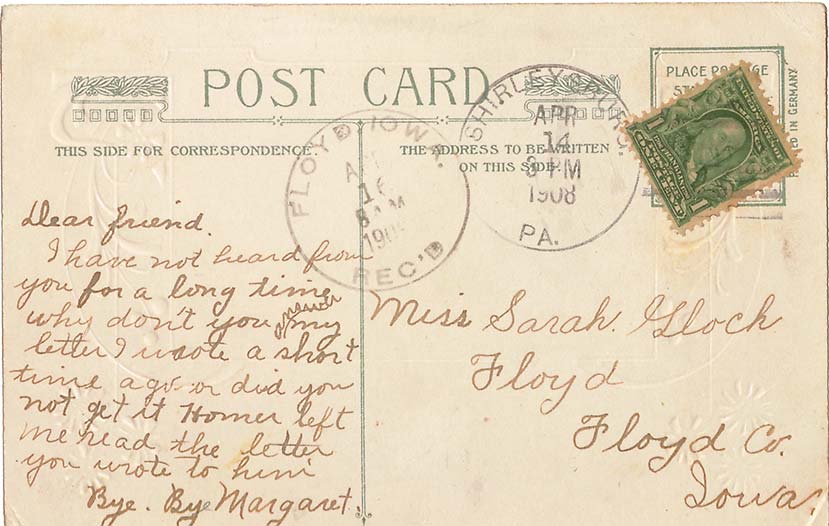 POST CARD
PLACE POSTAGE
THIS SIDE FOR CORRESPONDENCE.
THE ADDRESS TO BE WRITTEN
ON THIS SIDE.
PRINTED IN GERMANY
SHIRLEYSBURG.
APR
14
3 PM
1908
PA.
FLOYD IOWA.
16
8 AM
REC'D
1
1
Dear friend.
I have not heard from
you for a long time
why don't you answer my
letter I wrote a short
time ago or did you
not get it Homer left
me read the letter
you wrote to him
Bye. Bye Margaret.
Miss Sarah. Gloch
Floyd
Floyd Co.
Iowa.